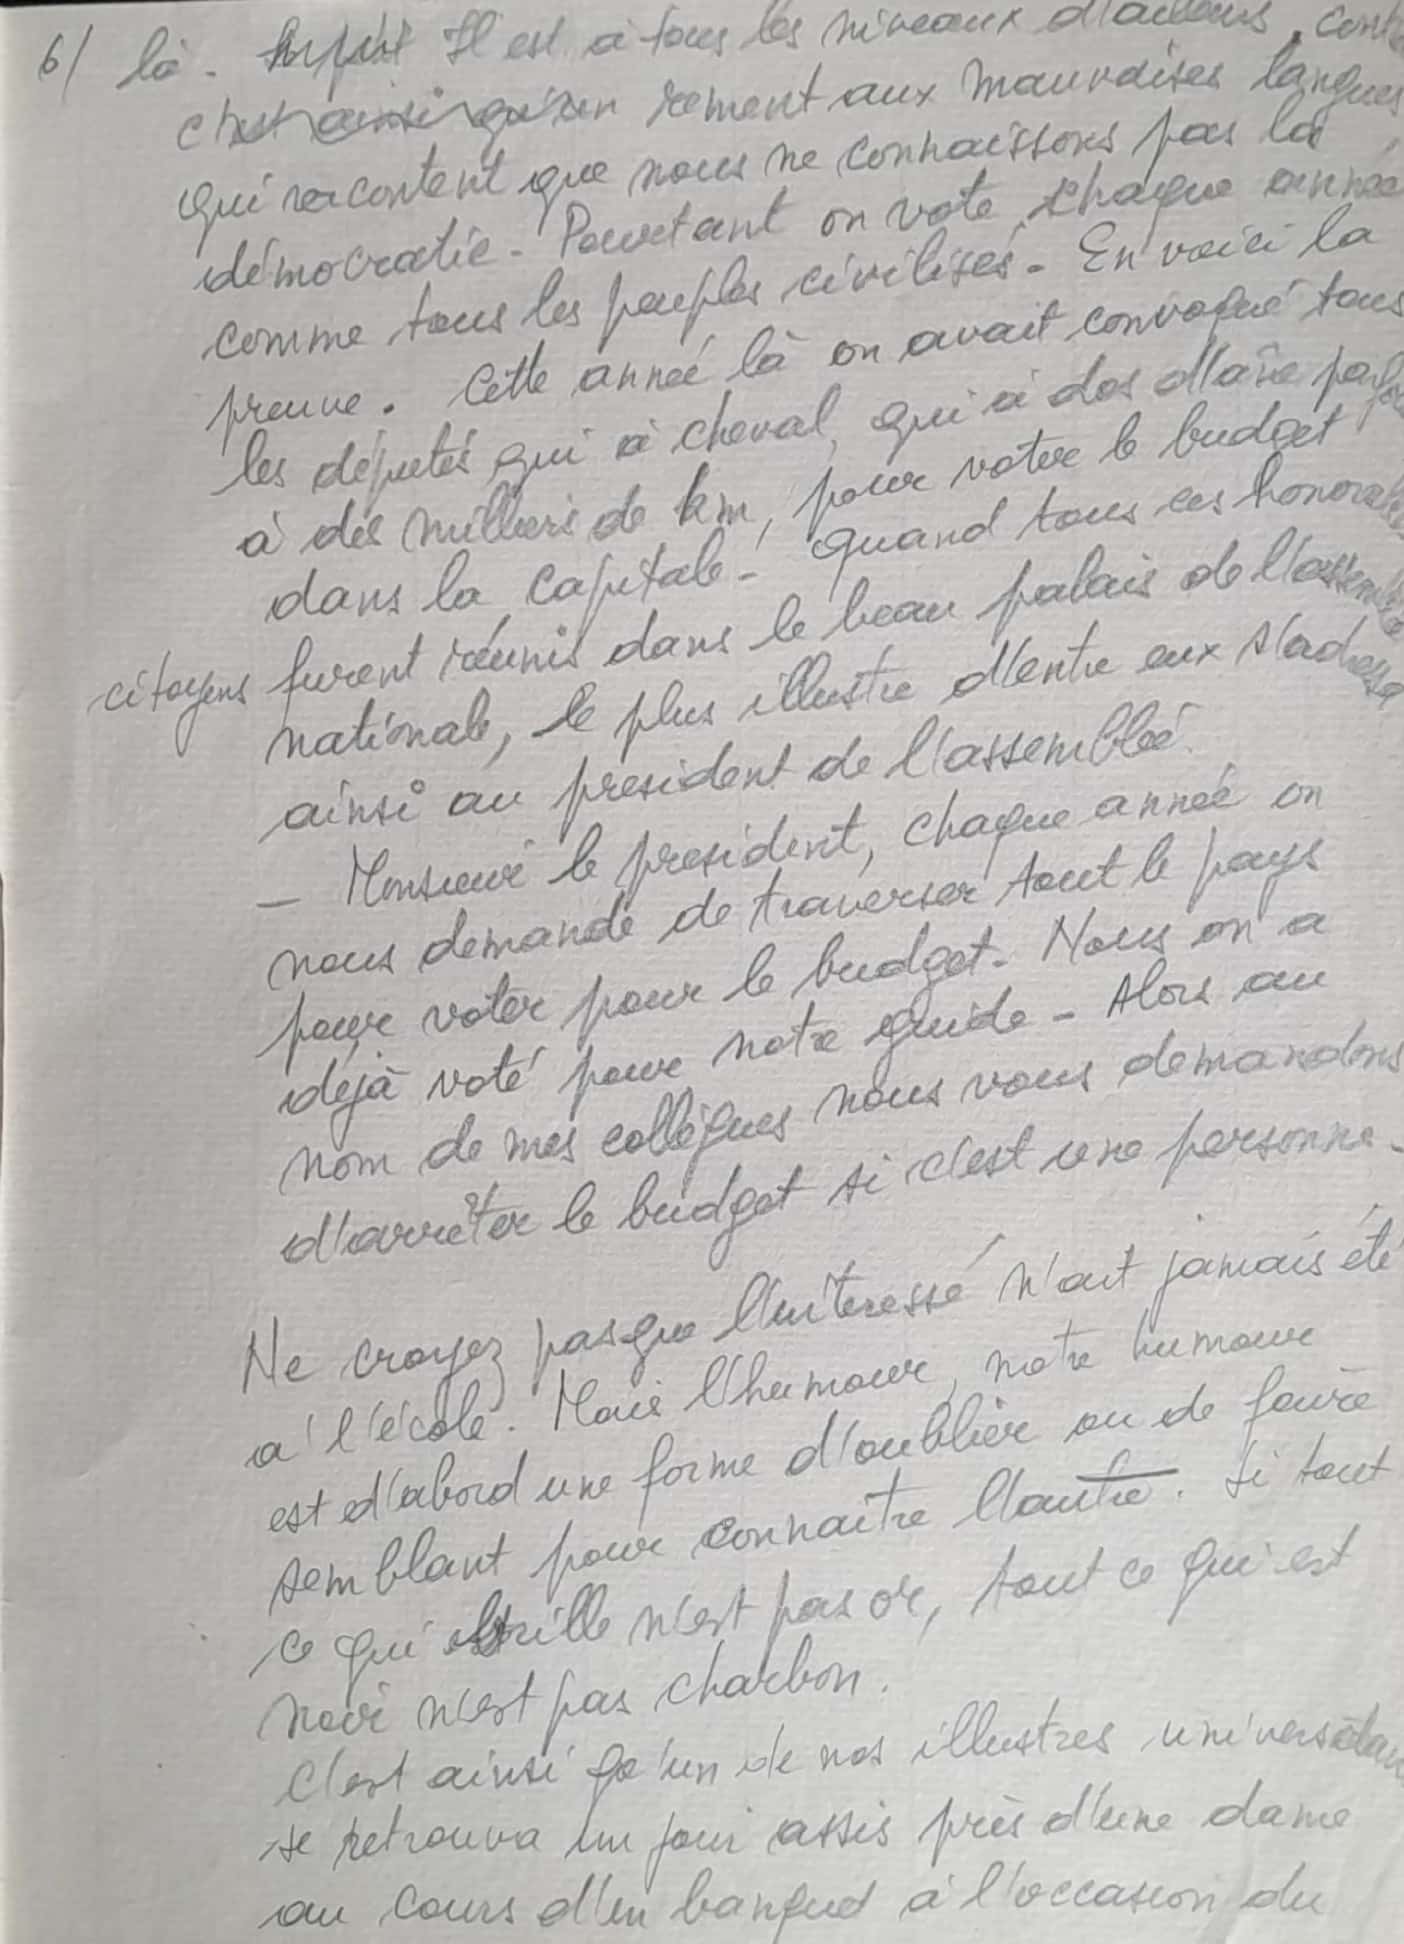 6/ là. Il est à tous les niveaux d'ailleurs, cont
c'est ainsi qu'un rement aux mauvaises langues
qui racontent que nous ne connaissons pas la
démocratie - Pourtant on vote chaque année
comme tous les peuples civilisés - En voici la
preuve. Cette année là on avait convoqué tous
les députés qui à cheval, qui à dos d'âne parfois
à des milliers de km, pour voter le budget
dans la capitale - Quand tous ces honorables
citoyens furent réunis dans le beau palais de l'assemblée
nationale, le plus illustre d'entre eux s'adressa
ainsi au président de l'assemblée.
— Monsieur le président, chaque année on
nous demande de traverser tout le pays
pour voter pour le budget. Nous on a
déjà voté pour notre guide - Alors au
nom de mes collègues nous vous demandons
d'arrêter le budget si c'est une personne -
Ne croyez pas que l'intéressé n'ait jamais été
a' l'école. Mais l'humour, notre humour
est d'abord une forme d'oublier ou de faire
semblant pour connaître l'autre. Si tout
ce qui brille n'est pas or, tout ce qui est
noir n'est pas charbon.
C'est ainsi qu'un de nos illustres
se retrouva un jour assis près d'une dame
au cours d'un banquet à l'occasion du